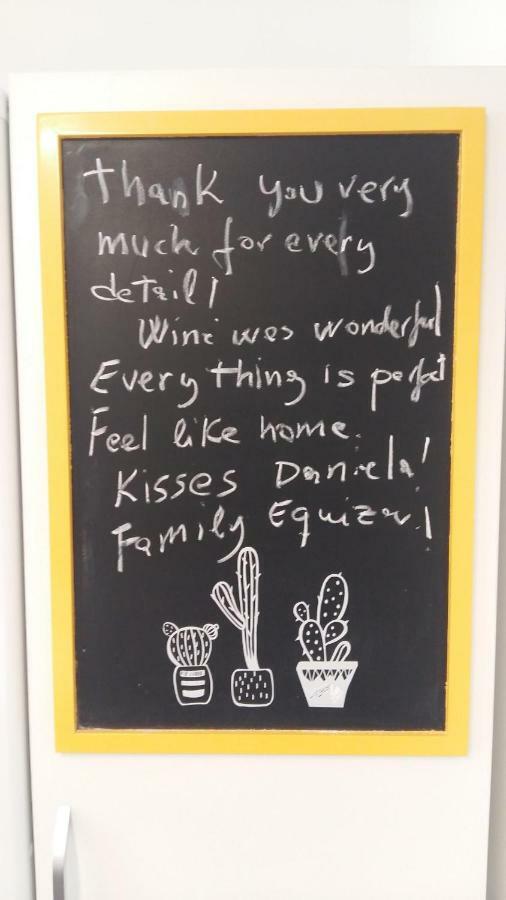 Thank you very
much for every
detail!
Wine was wonderful
Everything is perfect
Feel like home.
Kisses Daniela!
Family Equiza!